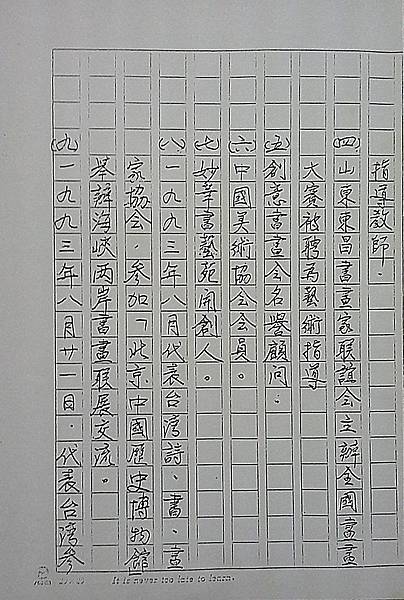 指導教師.
(四)山東東昌書畫家聯誼會主辦全國書畫
大賽被聘為藝術指導
(五)創意書畫會名譽顧問.
(六)中國美術協會會員。
(七)妙華書藝苑開創人。
(八)一九九三年八月代表台灣詩、書、畫
家協會.參加「北京中國歷史博物館
舉辦海峽两岸書畫联展交流。
(九)一九九三年八月廿一日.代表台灣參
It is never too late to learn.